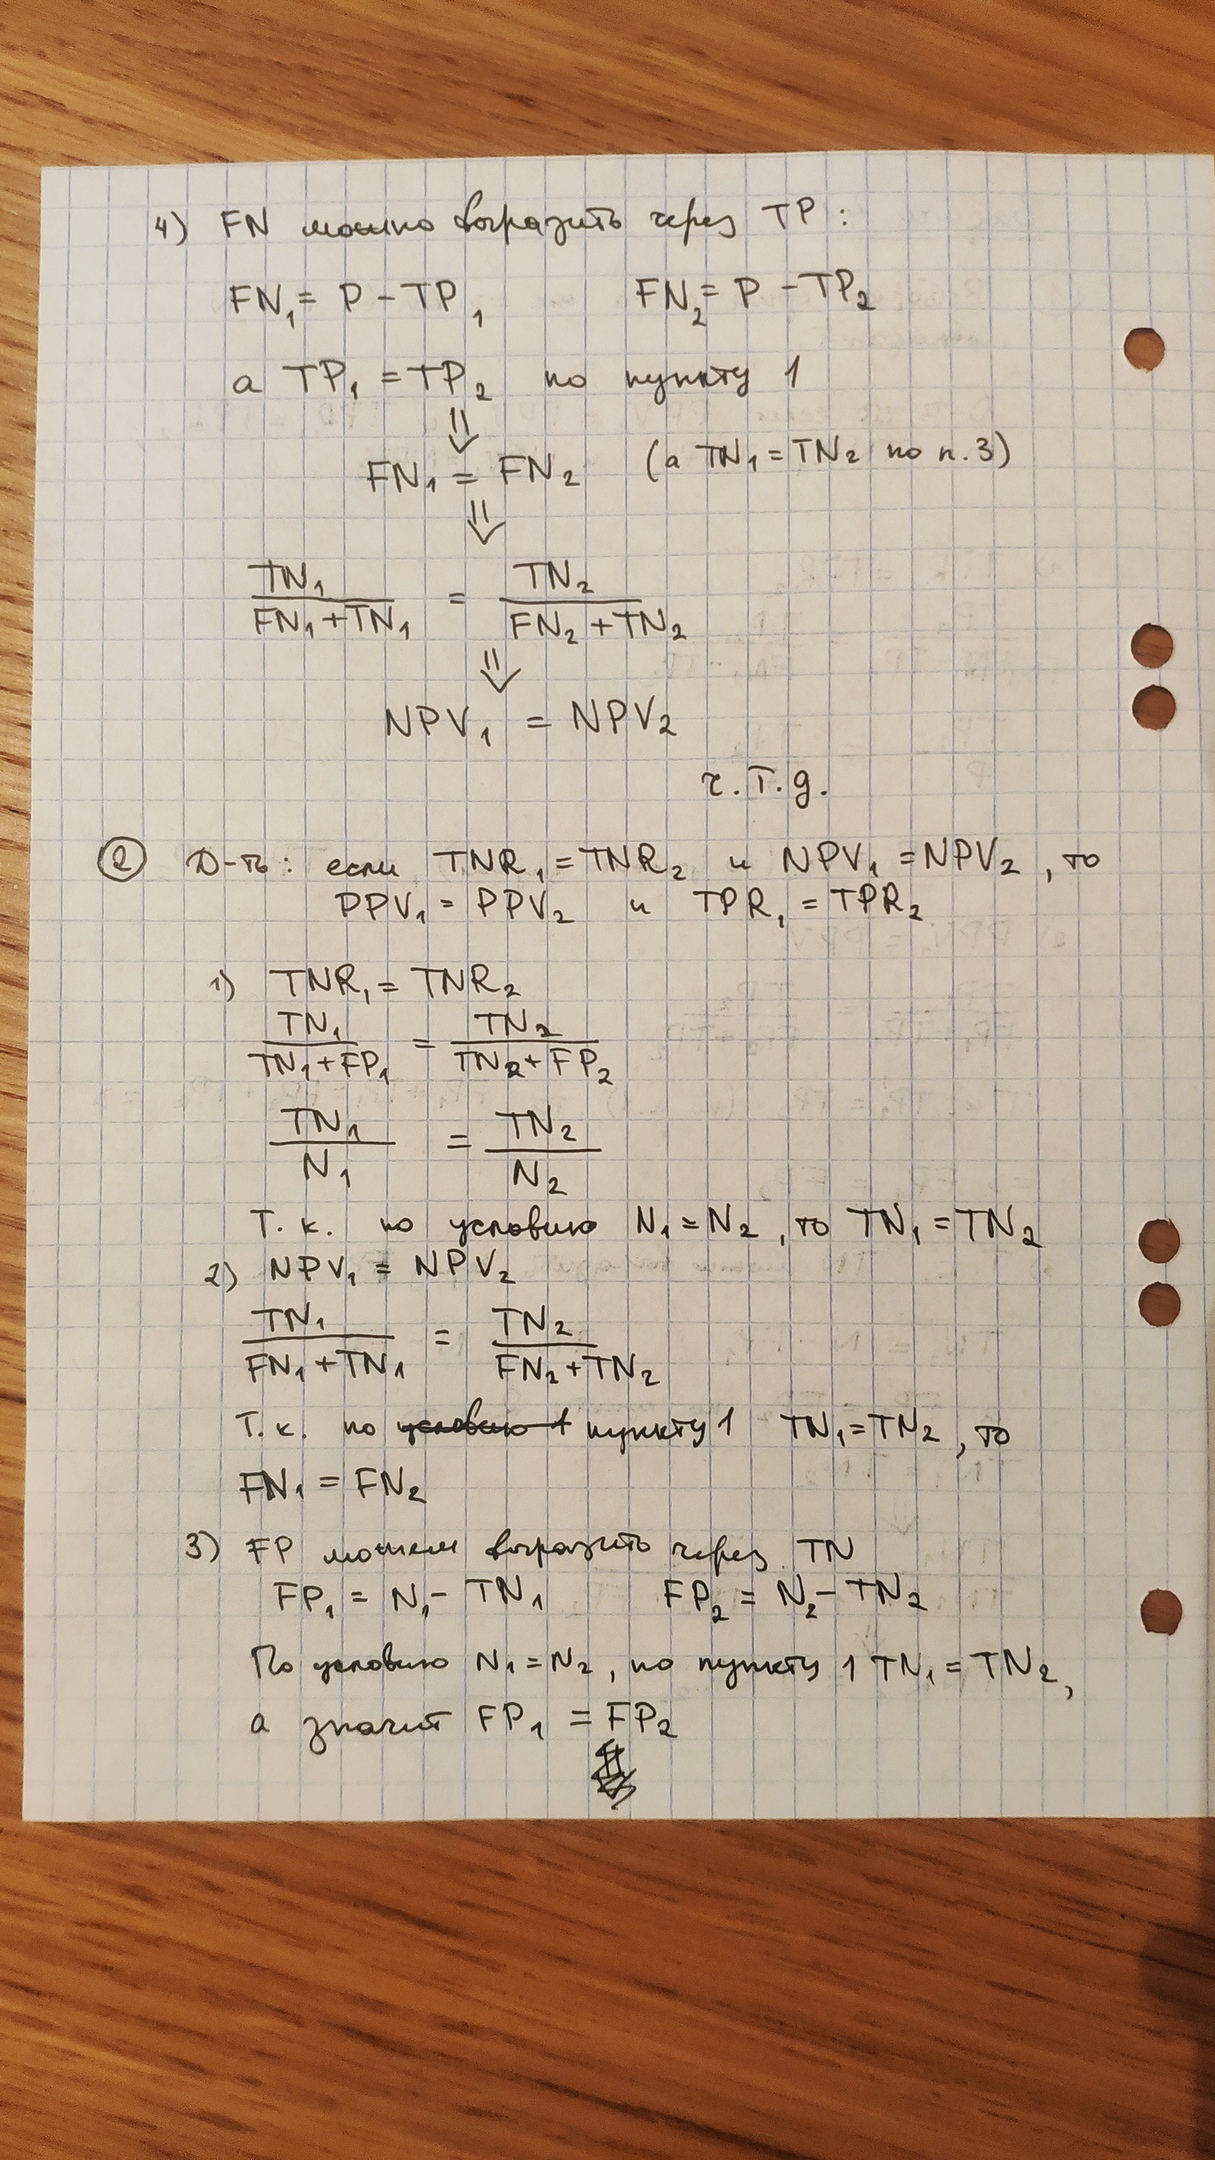 4) FN можно выразить через TP:
FN₁ = P - TP₁   FN₂ = P - TP₂
а TP₁ = TP₂ по пункту 1
⇓
FN₁ = FN₂ (а TN₁ = TN₂ по п.3)
⇓
TN₁/(FN₁+TN₁) = TN₂/(FN₂+TN₂)
⇓
NPV₁ = NPV₂
ч.т.д.
② Д-ть: если TNR₁ = TNR₂ и NPV₁ = NPV₂, то
PPV₁ = PPV₂ и TPR₁ = TPR₂
1) TNR₁ = TNR₂
TN₁/(TN₁+FP₁) = TN₂/(TN₂+FP₂)
TN₁/N₁ = TN₂/N₂
Т.к. по условию N₁ = N₂, то TN₁ = TN₂
2) NPV₁ = NPV₂
TN₁/(FN₁+TN₁) = TN₂/(FN₂+TN₂)
Т.к. по условию 1 пункту 1 TN₁ = TN₂, то
FN₁ = FN₂
3) FP можем выразить через TN
FP₁ = N₁ - TN₁   FP₂ = N₂ - TN₂
По условию N₁ = N₂, по пункту 1 TN₁ = TN₂,
а значит FP₁ = FP₂